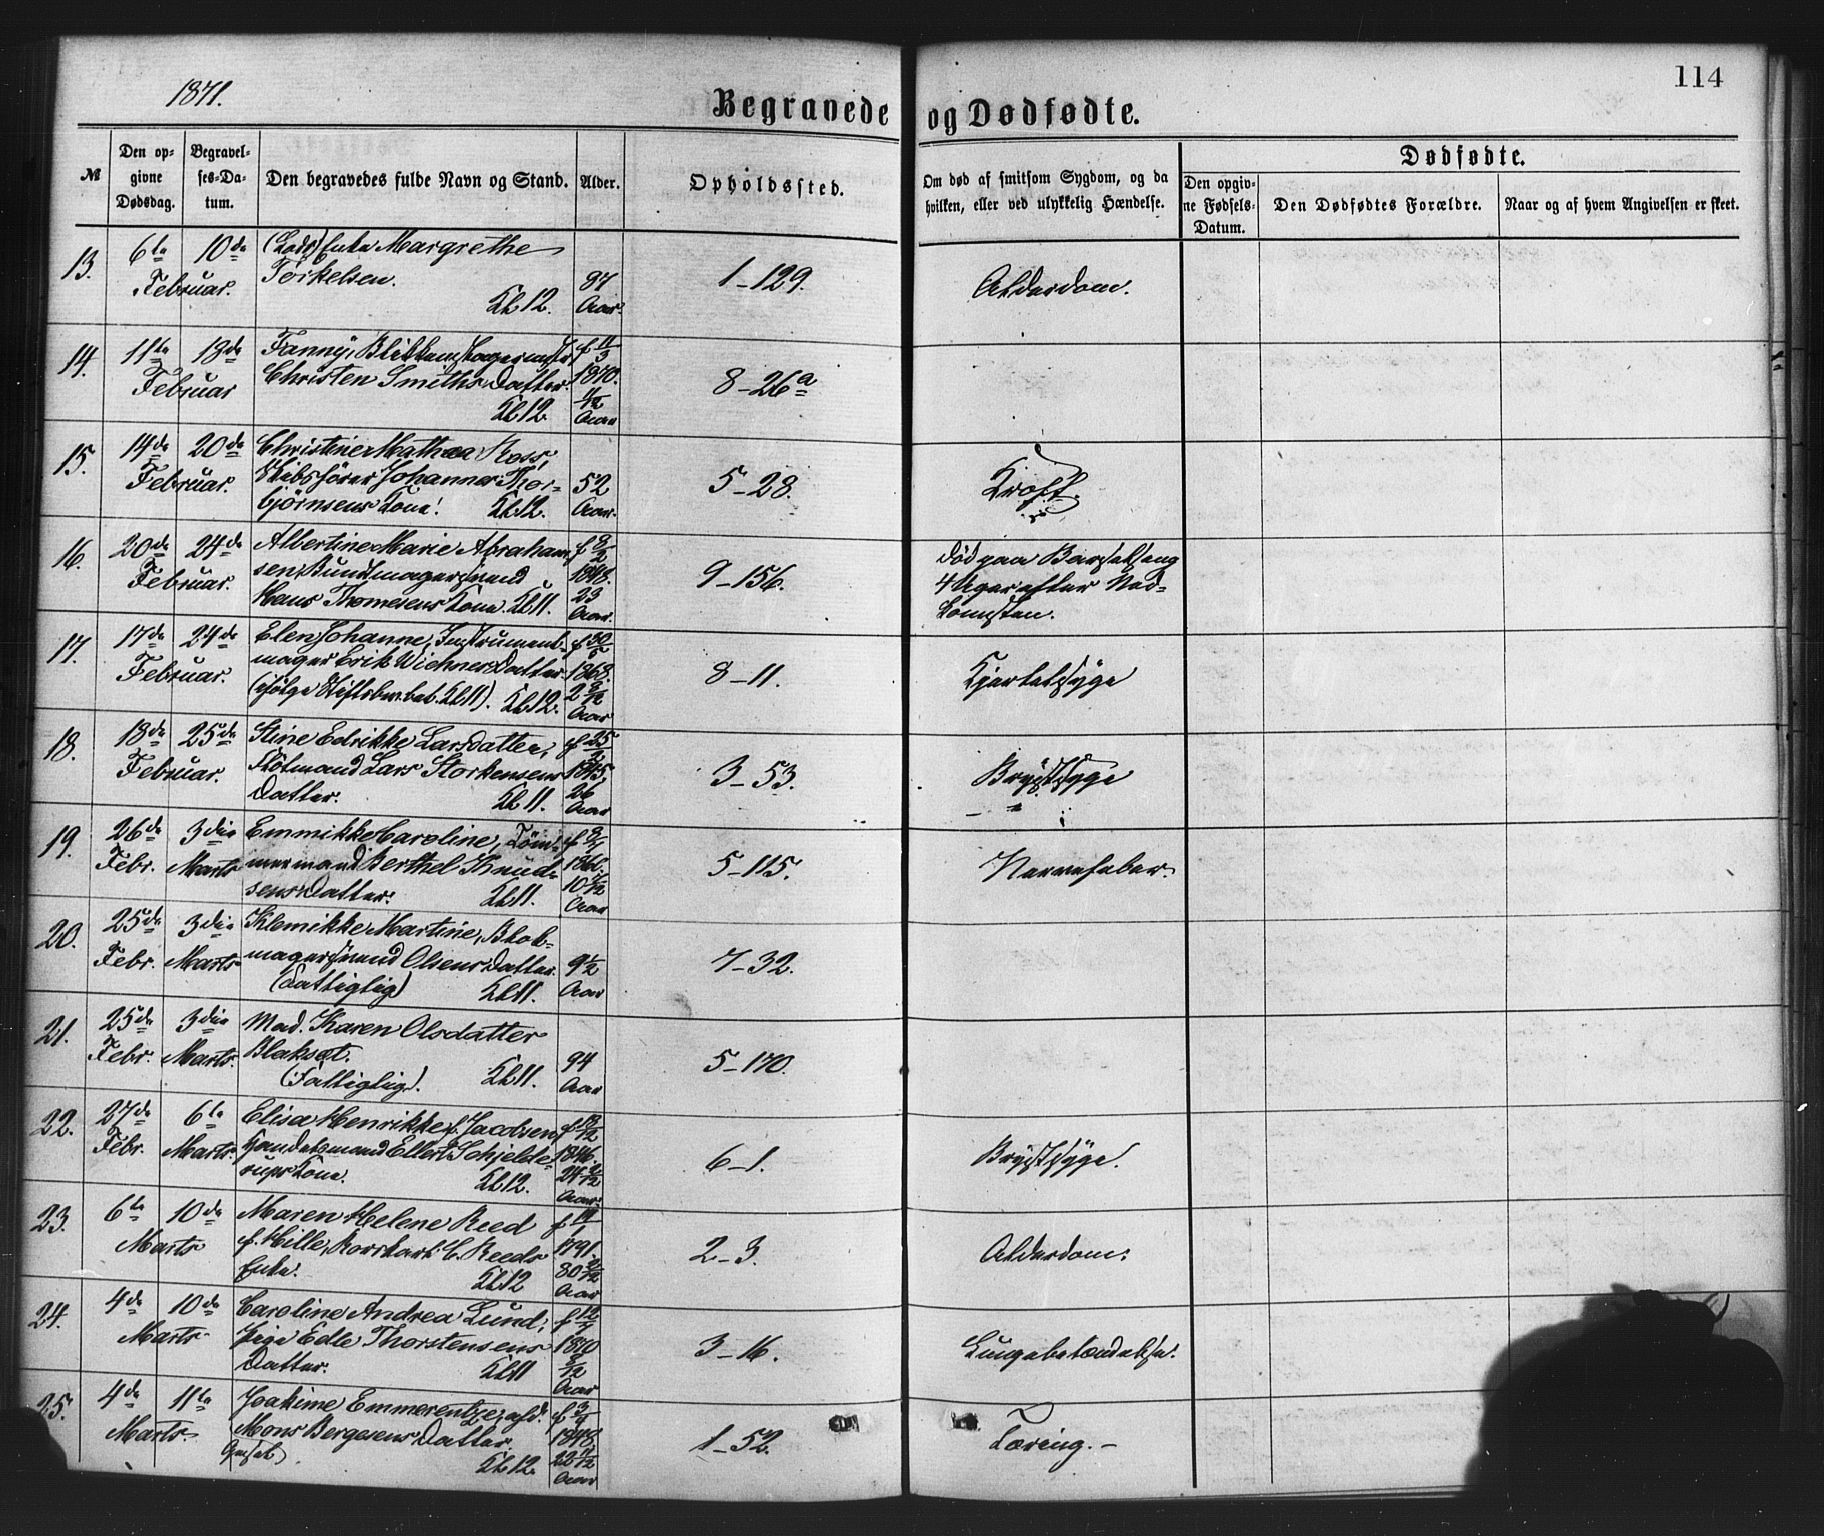 1871.
114
Begravede og Dødfødte.
№
Den op-
givne
Dødsdag.
Begravel-
ses-Da-
tum.
Den begravedes fulde Navn og Stand.
Alder.
Opholdssted.
Om død af smitsom Sygdom, og da
hvilken, eller ved ulykkelig Hændelse.
Dødfødte.
Den opgiv-
ne Fødsels-
Datum.
Den Dødfødtes Forældre.
Naar og af hvem Angivelsen er skeet.
13. 6te 10de Februar.
(Lods) Enke Margrethe
Torkelsen. Kl 12.
97 Aar.
1-129.
Alderdom.
14. 11te 18de Februar
Fanny, Blikkenslagermstr
Christen Smiths Datter.
Kl 12.
f 11/3 1870. 11/12 Aar
8-26a
15. 14de 20de Februar.
Christine Mathea Ross,
Skibsfører Johannes Thor-
bjørnsens Kone. Kl 12.
52 Aar.
5-28.
Kræft.
16. 20de 24de Februar.
Albertine Marie Abraham-
sen, Buntmagersvend
Hans Thomesens Kone. Kl 11.
f 8/2 1848. 23 Aar.
9-156.
Død paa Barselseng
4 Uger efter Ned-
komsten.
17. 17de 24de Februar.
Elen Johanne, Instrument-
mager Erik Wiehners Datter
(ifølge Stiftsbem. bet. Kl 11). Kl 12.
f 30/5 1868. 2 9/12 Aar
8-11.
Kjertelsyge
18. 18de 25de Februar.
Stine Edrikke Larsdatter,
Fløtmand Lars Storkensens
Datter. Kl 11.
f 25/2 1845, 26 Aar
3-53.
Brystsyge
19. 26de Febr. 3die Marts
Emmikke Karoline, Tøm-
mermand Berthel Knud-
sens Datter. Kl 11.
5-115.
Nervefeber.
20. 25de Febr. 3die Marts
Klemikke Martine, Blok-
magersvend Olsens Datter.
(Fattiglig) Kl 11.
9 1/2 Aar
7-32.
21. 25de Febr. 3die Marts.
Mad. Karen Olsdatter
Blaksat.
(Fattiglig). Kl 11.
94 Aar
5-170.
22. 27de Febr. 6te Marts.
Elisa Henrikke f. Jacobsen,
Handelsmand Ellert Schjelde-
rups Kone. Kl 12.
1846. 24 2/12 Aar.
6-1.
Brystsyge.
23. 6te 10de Marts
Maren Helene Reed
f. Hille, Rorskarl C. Reeds
Enke. Kl 12
f 19/1 1791. 80 2/12 Aar
2-3.
Alderdom.
24. 4de 10de Marts
Caroline Andrea Lund,
Pige Edle Thorstensens
Datter. Kl 11
f 12/7 1870 8/12 Aar
3-16.
Lungebetændelse.
25. 4de 11te Marts.
Joakime Emmerentze, afd.
Mons Bergesens Datter.
Kl 12.
f 3/9 1848 22 Aar
1-52.
Tæring.-